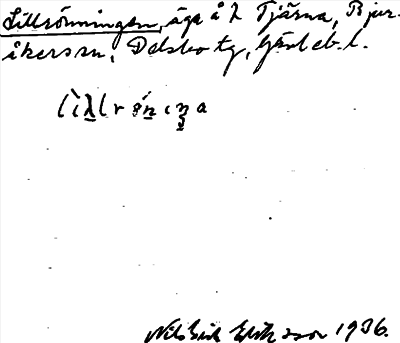 Lillrönningen, äga å 2 Tjärna, Bjur-
åkers sn, Delsbo tg, Gävleb. l.
Nils Erik Eriksson 1936.